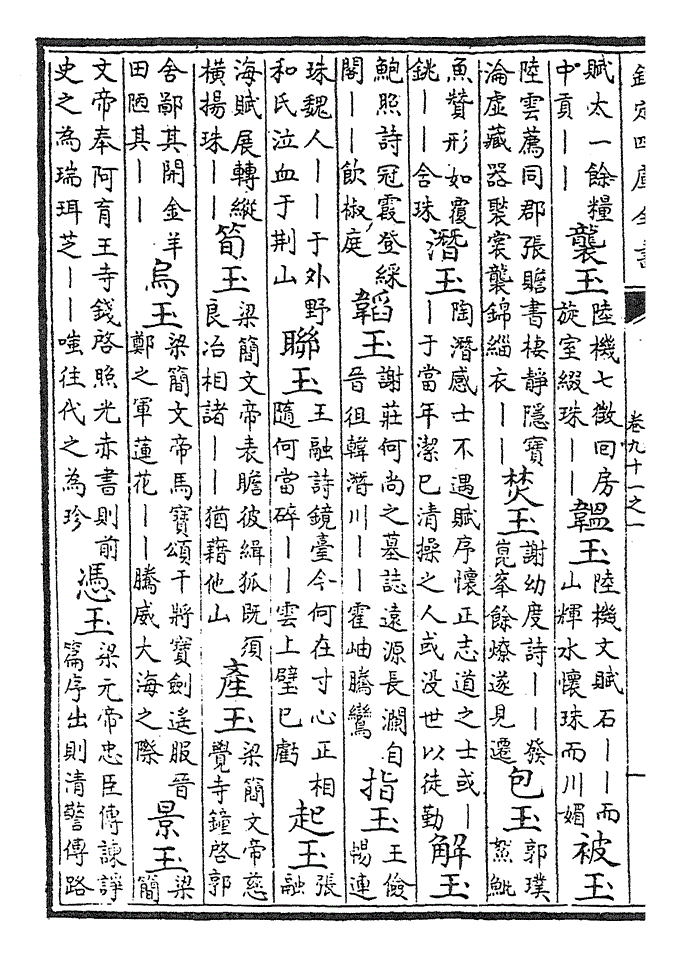 欽定四庫全書 卷九十一之一 一
賦太一餘糧中貢｜｜ 襲玉 陸機七徵回房旋室綴珠｜｜ 韞玉 陸機文賦石｜｜而山輝水懷珠而川媚 被玉
陸雲薦同郡張贍書棲靜隱寶淪虛藏器褧裳襲錦緇衣｜｜ 焚玉 謝幼度詩｜｜發崑峯餘燎遂見遷 包玉 郭璞鰲魮
魚贊形如覆銚｜｜含珠 潛玉 陶潛感士不遇賦序懷正志道之士或｜｜于當年潔已清操之人或没世以徒勤 解玉
鮑照詩冠霞登綵閣｜｜飲椒庭 韜玉 謝莊何尚之墓誌遠源長瀾自晉徂韓潛川｜｜霍岫騰鸞 指玉 王儉暢連
珠魏人｜｜于外野和氏泣血于荆山 聯玉 王融詩鏡臺今何在寸心正相隨何當碎｜｜雲上璧已虧 起玉 張融
海賦展轉縱橫揚珠｜｜ 筍玉 梁簡文帝表瞻彼緝狐既須良冶相諸｜｜猶藉他山 產玉 梁簡文帝慈覺寺鐘啓郭
舍鄙其開金羊田陋其｜｜ 烏玉 梁簡文帝馬寶頌干將寶劍遙服晉鄭之軍蓮花｜｜騰威大海之際 景玉 梁簡
文帝奉阿育王寺錢啓照光赤書則前史之為瑞珥芝｜｜嗤往代之為珍 憑玉 梁元帝忠臣傳諫諍篇序出則清警傳路